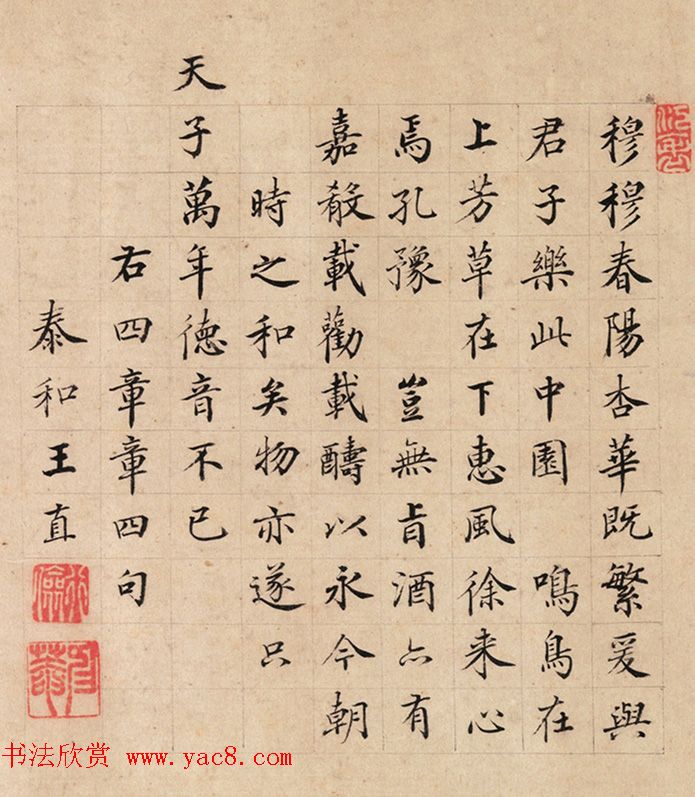 穆穆春陽杏華既繁爰與
君子樂此中園 鳴鳥在
上芳草在下惠風徐來心
焉孔豫 豈無旨酒亦有
嘉殽載勸載醻以永今朝
時之和矣物亦遂只
天子萬年德音不已
右四章章四句
泰和王直
书法欣赏 www.yac8.com